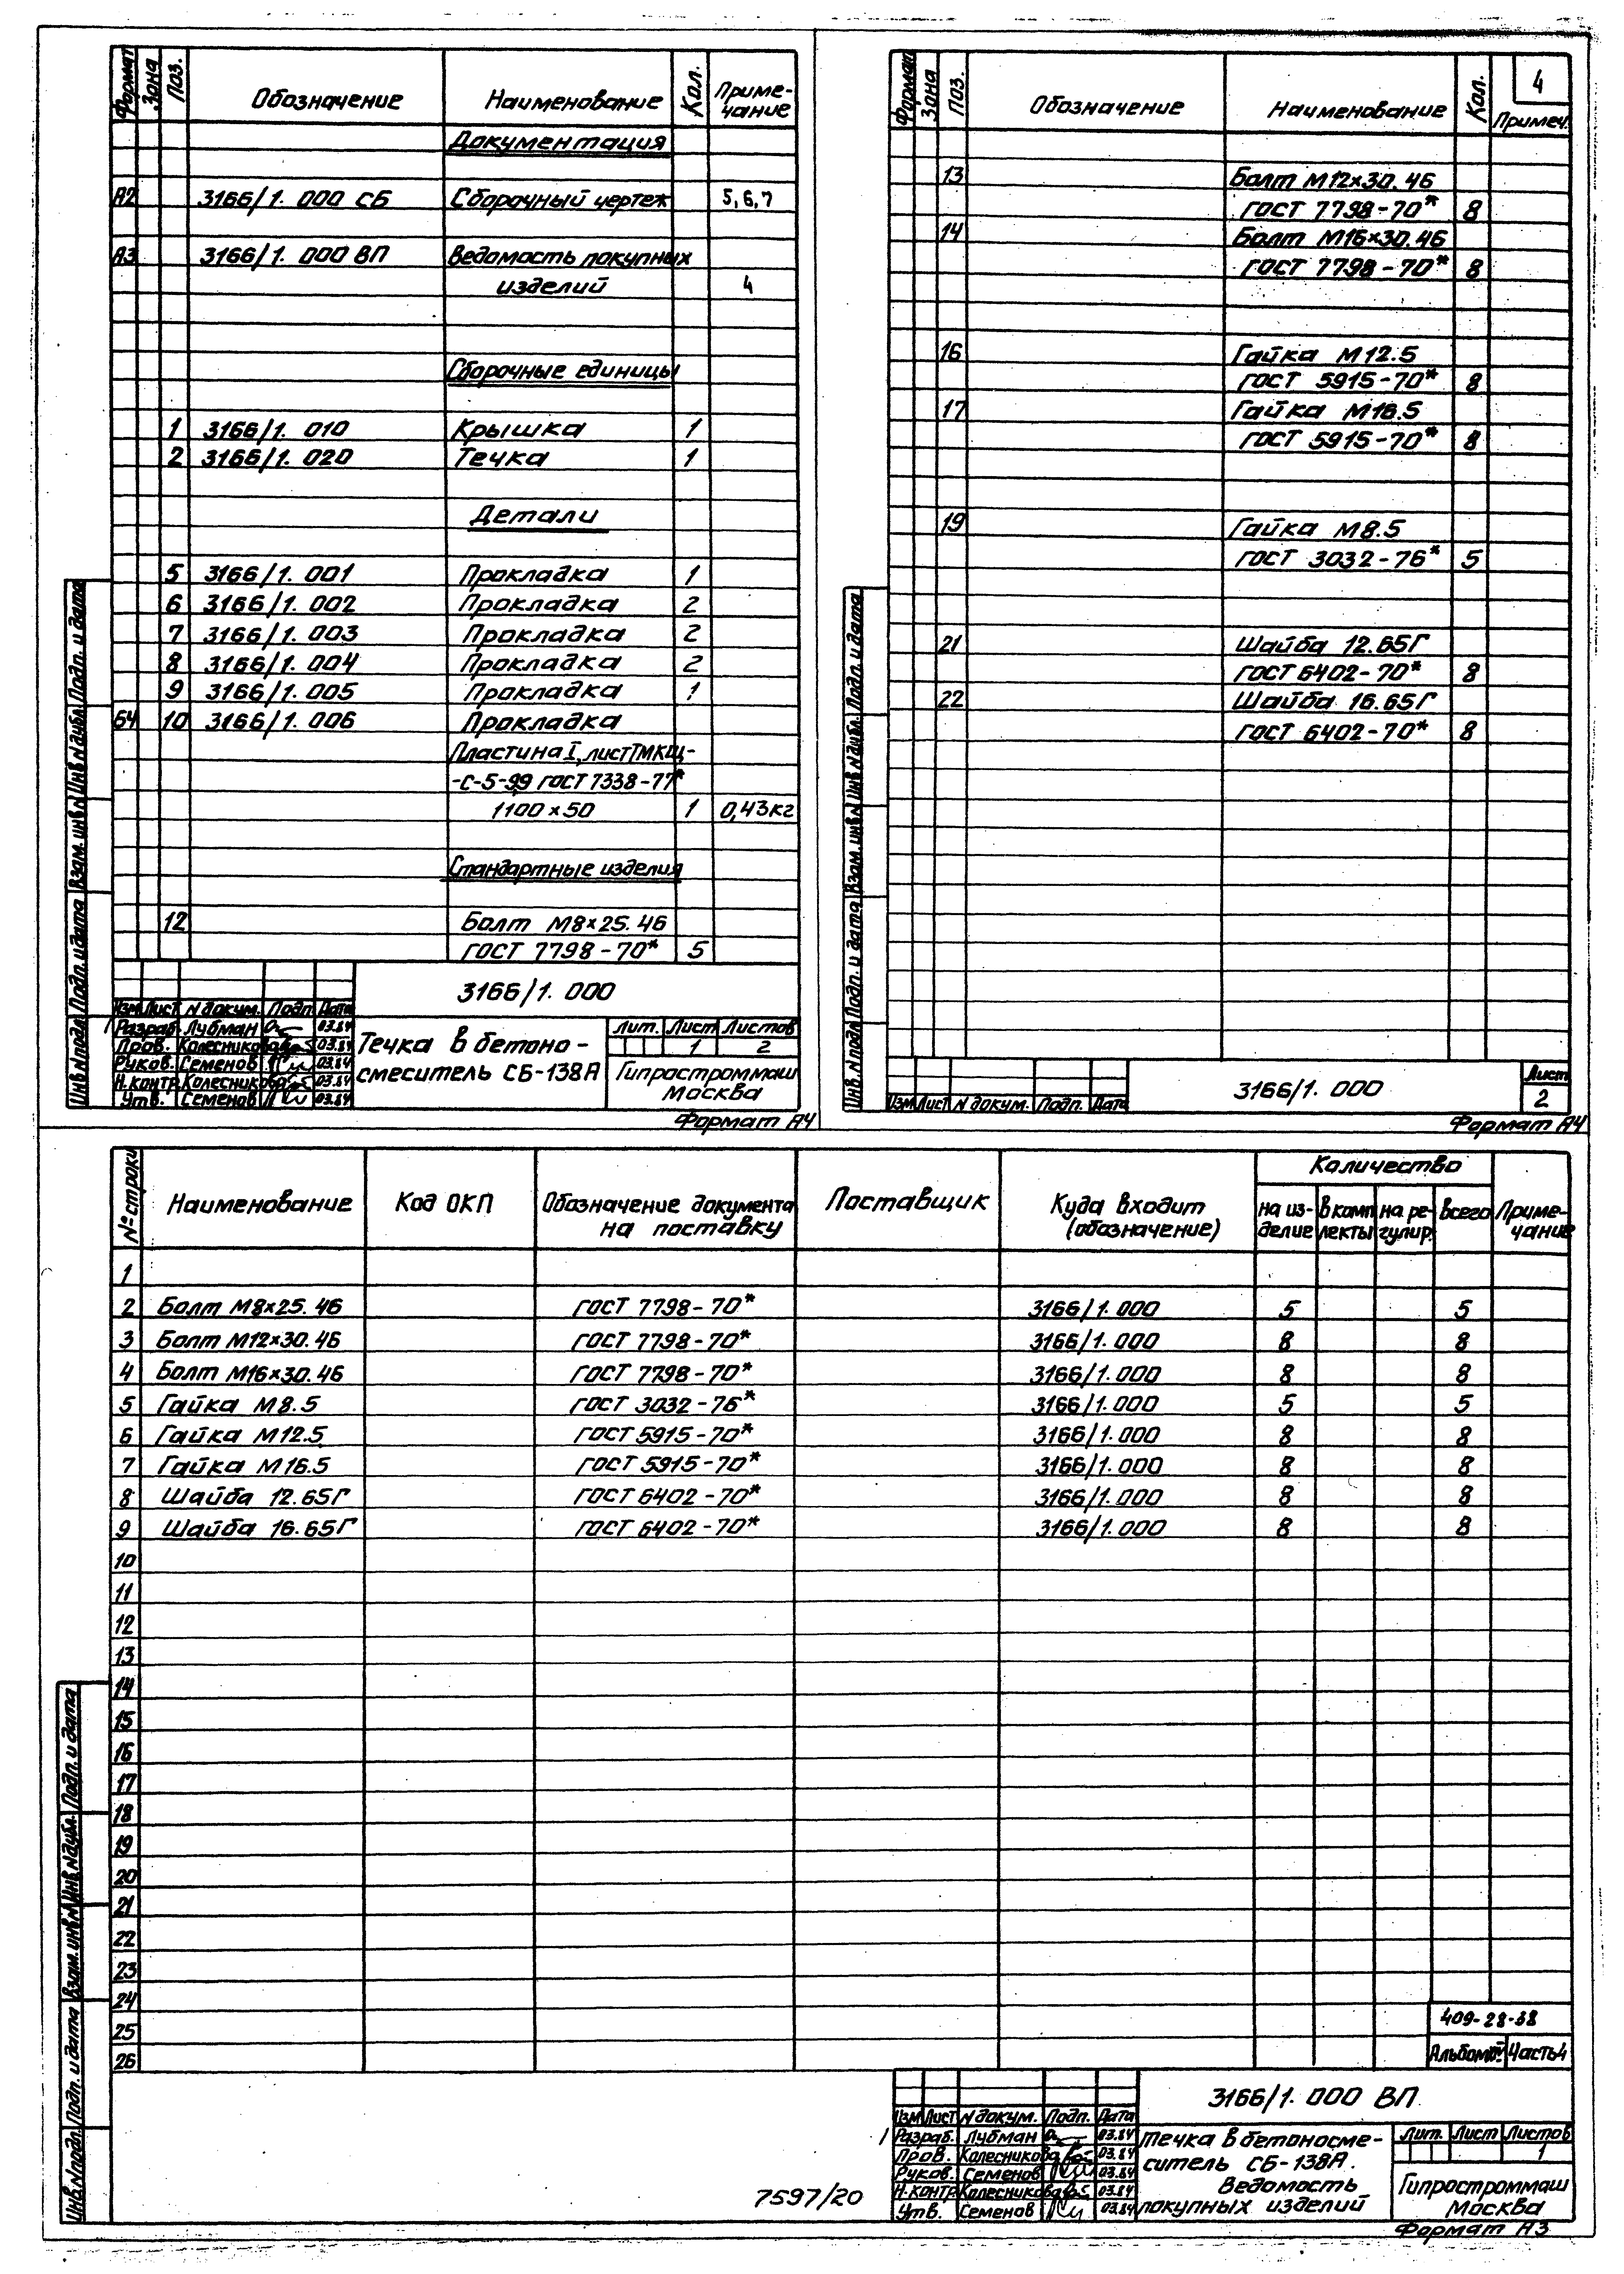 Формат Зона Поз. Обозначение Наименование Кол. Приме-
чание
Документация
А2 3166/1. 000 СБ Сборочный чертеж 5,6,7
А3 3166/1. 000 ВП Ведомость покупных
изделий 4
Сборочные единицы
1 3166/1. 010 Крышка 1
2 3166/1. 020 Течка 1
Детали
5 3166/1. 001 Прокладка 1
6 3166/1. 002 Прокладка 2
7 3166/1. 003 Прокладка 2
8 3166/1. 004 Прокладка 2
9 3166/1. 005 Прокладка 1
БЧ 10 3166/1. 006 Прокладка
Пластина I, лист ТМКЩ-
-С-5-99 ГОСТ 7338-77*
1100 × 50 1 0,43кг
Стандартные изделия
12 Болт М8×25.46
ГОСТ 7798-70* 5
Инв.N подл. Подп. и дата Взам. инв.N Инв.N дубл. Подп. и дата
3166/1. 000
Изм Лист N докум. Подп. Дата
Разраб. Лубман 03.84
Пров. Колесникова 03.84
Руков. Семенов 03.84
Н.контр. Колесникова 03.84
Утв. Семенов 03.84
Течка в бетоно-
смеситель СБ-138А
Лит. Лист Листов
1 2
Гипростроммаш
Москва
Формат А4
4
Формат Зона Поз. Обозначение Наименование Кол. Примеч.
13 Болт М12×30.46
ГОСТ 7798-70* 8
14 Болт М16×30.46
ГОСТ 7798-70* 8
16 Гайка М12.5
ГОСТ 5915-70* 8
17 Гайка М16.5
ГОСТ 5915-70* 8
19 Гайка М8.5
ГОСТ 3032-76* 5
21 Шайба 12.65Г
ГОСТ 6402-70* 8
22 Шайба 16.65Г
ГОСТ 6402-70* 8
Инв.N подл. Подп. и дата Взам. инв.N Инв.N дубл. Подп. и дата
Изм Лист N докум. Подп. Дата
3166/1. 000
Лист
2
Формат А4
№ строки Наименование Код ОКП Обозначение документа
на поставку Поставщик Куда входит
(обозначение) Количество
на из-
делие в комп
лекты на ре-
гулир. всего Приме-
чание
1
2 Болт М8×25.46 ГОСТ 7798-70* 3166/1.000 5 5
3 Болт М12×30.46 ГОСТ 7798-70* 3166/1.000 8 8
4 Болт М16×30.46 ГОСТ 7798-70* 3166/1.000 8 8
5 Гайка М8.5 ГОСТ 3032-76* 3166/1.000 5 5
6 Гайка М12.5 ГОСТ 5915-70* 3166/1.000 8 8
7 Гайка М16.5 ГОСТ 5915-70* 3166/1.000 8 8
8 Шайба 12.65Г ГОСТ 6402-70* 3166/1.000 8 8
9 Шайба 16.65Г ГОСТ 6402-70* 3166/1.000 8 8
10
11
12
13
14
15
16
17
18
19
20
21
22
23
24
25
26
Инв.N подл. Подп. и дата Взам. инв.N Инв.N дубл. Подп. и дата
409-28-38
Альбом Часть 4
3166/1. 000 ВП
Изм Лист N докум. Подп. Дата
Разраб. Лубман 03.84
Пров. Колесникова 03.84
Руков. Семенов 03.84
Н.контр Колесникова 03.84
Утв. Семенов 03.84
Течка в бетоносме-
ситель СБ-138А.
Ведомость
покупных изделий
Лит. Лист Листов
1
Гипростроммаш
Москва
7597/20
Формат А3